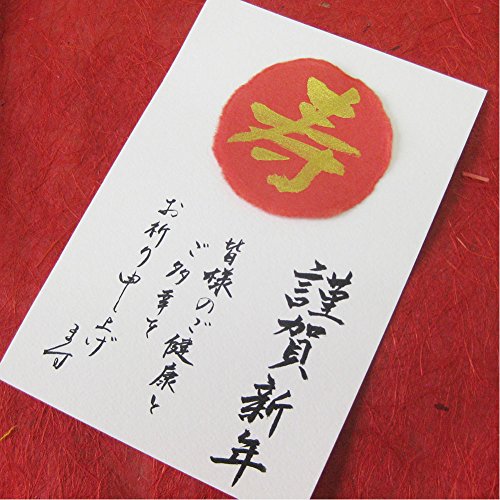 寿
謹賀新年
皆様のご健康と
ご多幸を
お祈り申し上げ
ます